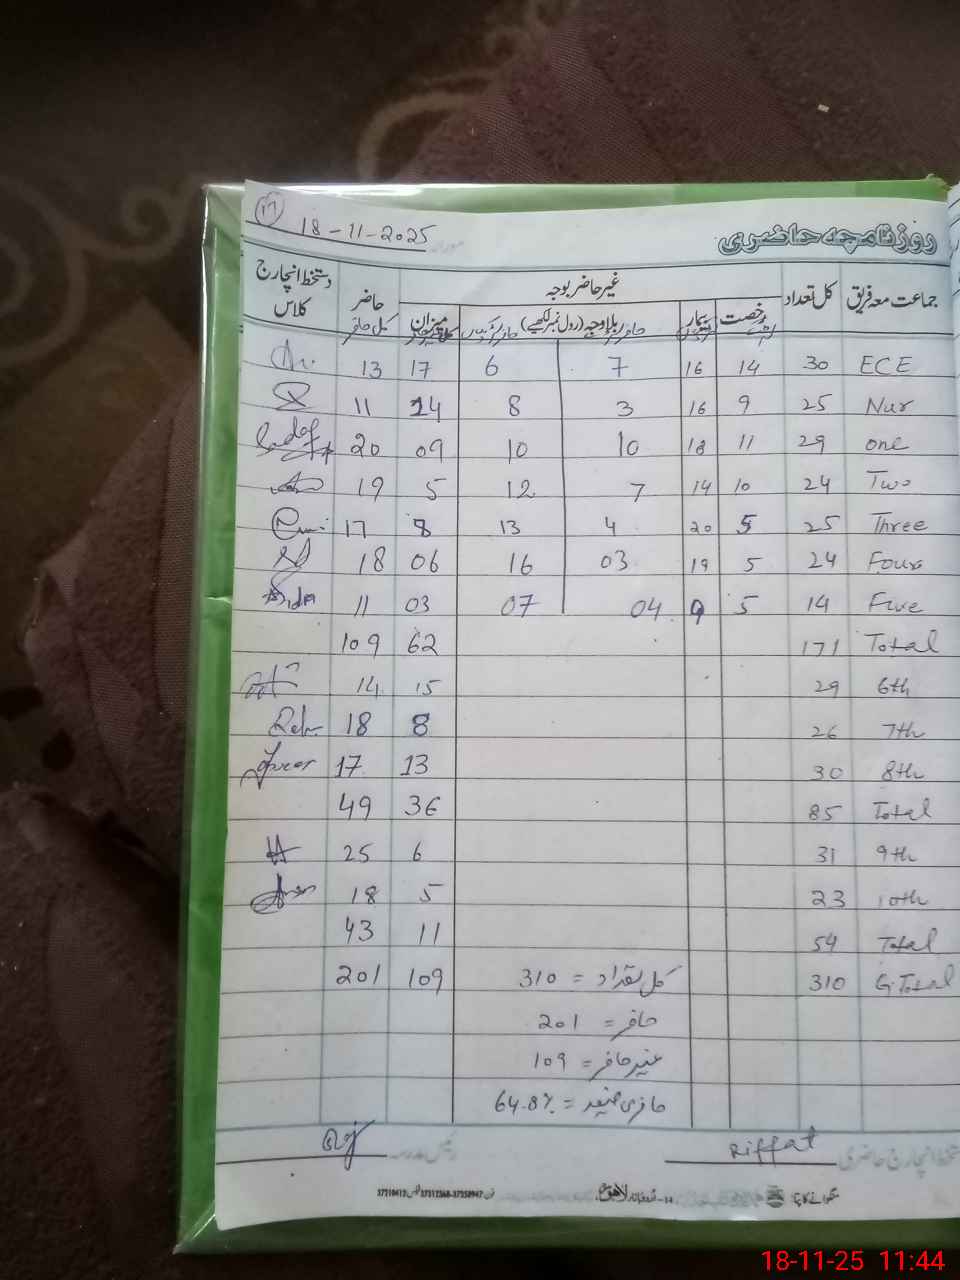 18-11-2025
روزنامچہ حاضری
جماعت معہ فریق کل تعداد غیر حاضر بوجہ حاضر دستخط انچارج کلاس
رخصت بیمار بلاوجہ (رول نمبر لکھیے) میزان کل حاضر
ECE 30 14 16 7 6 17 13
Nur 25 9 16 3 8 14 11
one 29 11 18 10 10 09 20
Two 24 10 14 7 12 5 19
Three 25 5 20 4 13 8 17
Four 24 5 19 03 16 06 18
Five 14 5 9 04 07 03 11
Total 171 62 109
6th 29 15 14
7th 26 8 18
8th 30 13 17
Total 85 36 49
9th 31 6 25
10th 23 5 18
Total 54 11 43
G.Total 310 کل تعداد = 310 109 201
حاضر = 201
غیر حاضر = 109
حاضری فیصد = 64.8%
دستخط انچارج حاضری Riffat رئیس مدرسہ
منگوانے کا پتہ: 14-اردو بازار لاہور
18-11-25 11:44